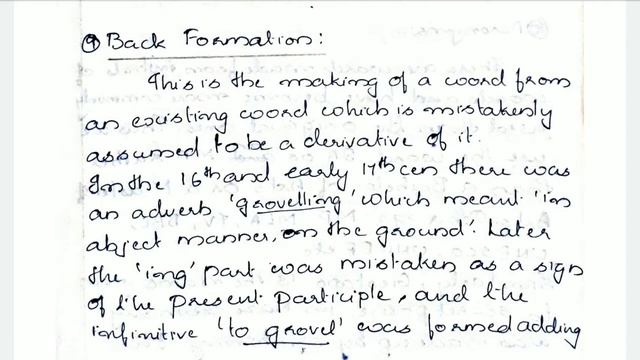 9 Back Formation:
This is the making of a word from
an existing word which is mistakenly
assumed to be a derivative of it.
In the 16th and early 17th cen there was
an adverb 'grovelling' which meant 'in
abject manner, on the ground'. Later
the 'ing' part was mistaken as a sign
of the present participle, and the
infinitive 'to grovel' was formed adding